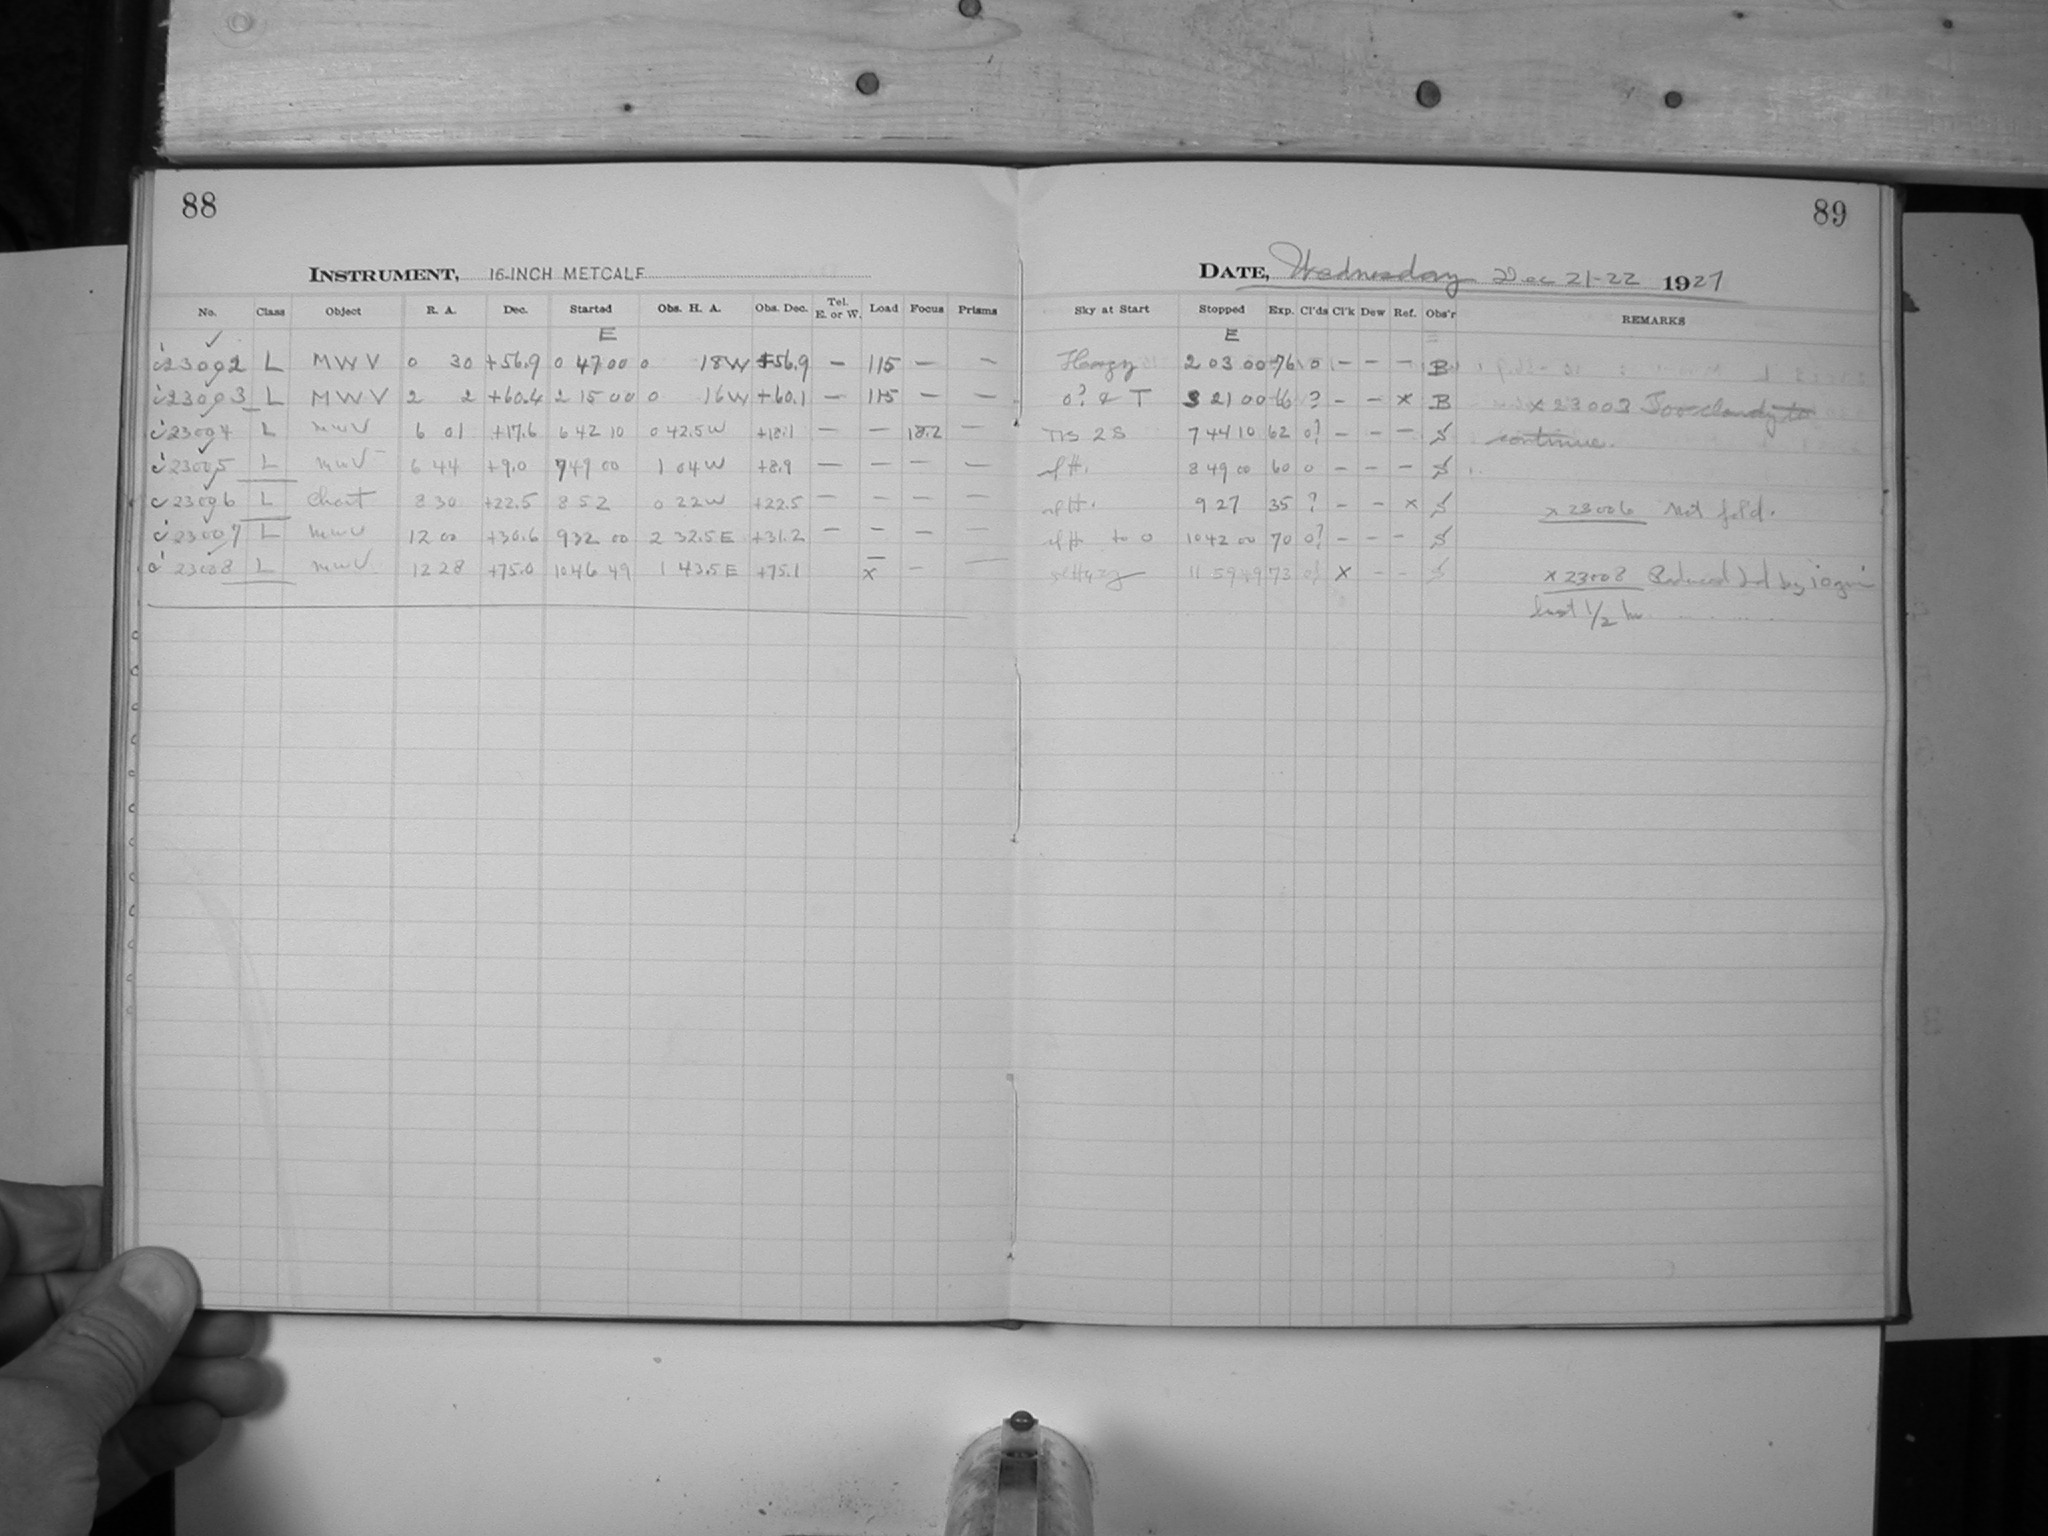 88
INSTRUMENT, 16-INCH METCALF
No. Class Object R. A. Dec. Started Obs. H. A. Obs. Dec. Tel. E. or W. Load Focus Prisms
E
23002 L MWV 0 30 +56.9 0 47 00 0 18W +56.9 — 115 — —
23003 L MWV 2 2 +60.4 2 15 00 0 16W +60.1 — 115 — —
23004 L MWV 6 01 +17.6 6 42 10 0 42.5W +18.1 — — 18.2 —
23005 L MWV 6 44 +9.0 7 49 00 1 04W +8.9 — — — —
23006 L Chart 8 30 +22.5 8 52 0 22W +22.5 — — — —
23007 L MWV 12 00 +30.6 9 32 00 2 32.5E +31.2 — — — —
23008 L MWV 12 28 +75.0 10 46 49 1 43.5E +75.1 — x — —
89
DATE, Wednesday Dec 21-22 1927
Sky at Start Stopped Exp. Cl'ds Cl'k Dew Ref. Obs'r REMARKS
E
Hazy 2 03 00 76 0 — — — B
0? & T 3 21 00 66 ? — — x B x 23003 Too cloudy to
T1S 2S 7 44 10 62 0? — — — S continue.
slH. 8 49 00 60 0 — — — S
slH. 9 27 35 ? — — x S x 23006 Not fold.
slH to 0 10 42 00 70 0? — — — S
11 59 49 73 0? x — — S x 23008 by
last 1/2 hr